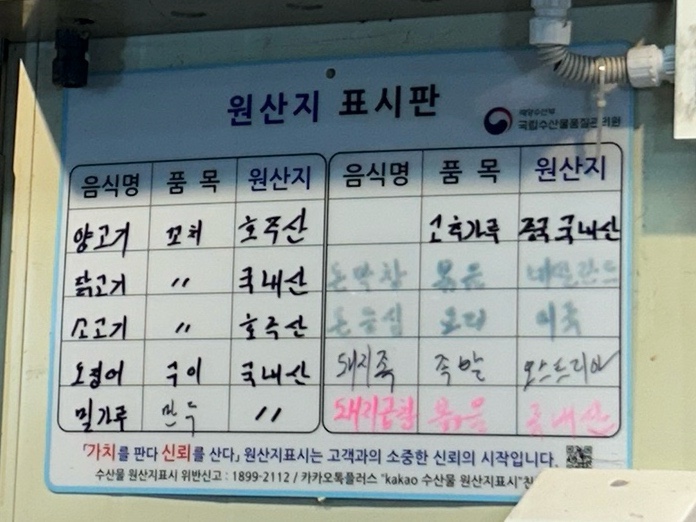 원산지 표시판
해양수산부
국립수산물품질관리원
음식명 품목 원산지 음식명 품목 원산지
양고기 꼬치 호주산 고추가루 중국 국내산
닭고기 〃 국내산 돈막창 볶음 네덜란드
소고기 〃 호주산 돈등심 요리 미국
오징어 구이 국내산 돼지족 족발 오스트리아
밀가루 만두 〃 돼지곱창 볶음 국내산
「가치를 판다 신뢰를 산다」 원산지표시는 고객과의 소중한 신뢰의 시작입니다.
수산물 원산지표시 위반신고 : 1899-2112 / 카카오톡플러스 "kakao 수산물 원산지표시"친